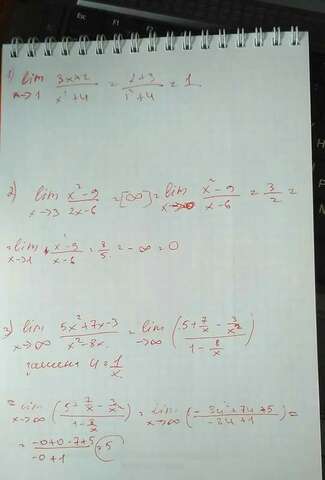 1) lim x→1 (3x+2)/(x²+4) = (2+3)/(1²+4) = 1
2) lim x→3 (x²-9)/(2x-6) = [∞] = lim (x²-9)/(x-6) = 3/2 =
= lim x→1 (x-9)/(x-6) = 8/5 = -∞ = 0
3) lim x→∞ (5x²+7x-3)/(x²-8x) = lim →∞ ((5+7/x-3/x²)/(1-8/x))
замена u=1/x
= lim x→∞ ((5+7/x-3/x²)/(1-8/x)) = lim x→∞ ((-3u²+7u+5)/(-8u+1)) =
= (-0+0-7+5)/(-0+1) = 5